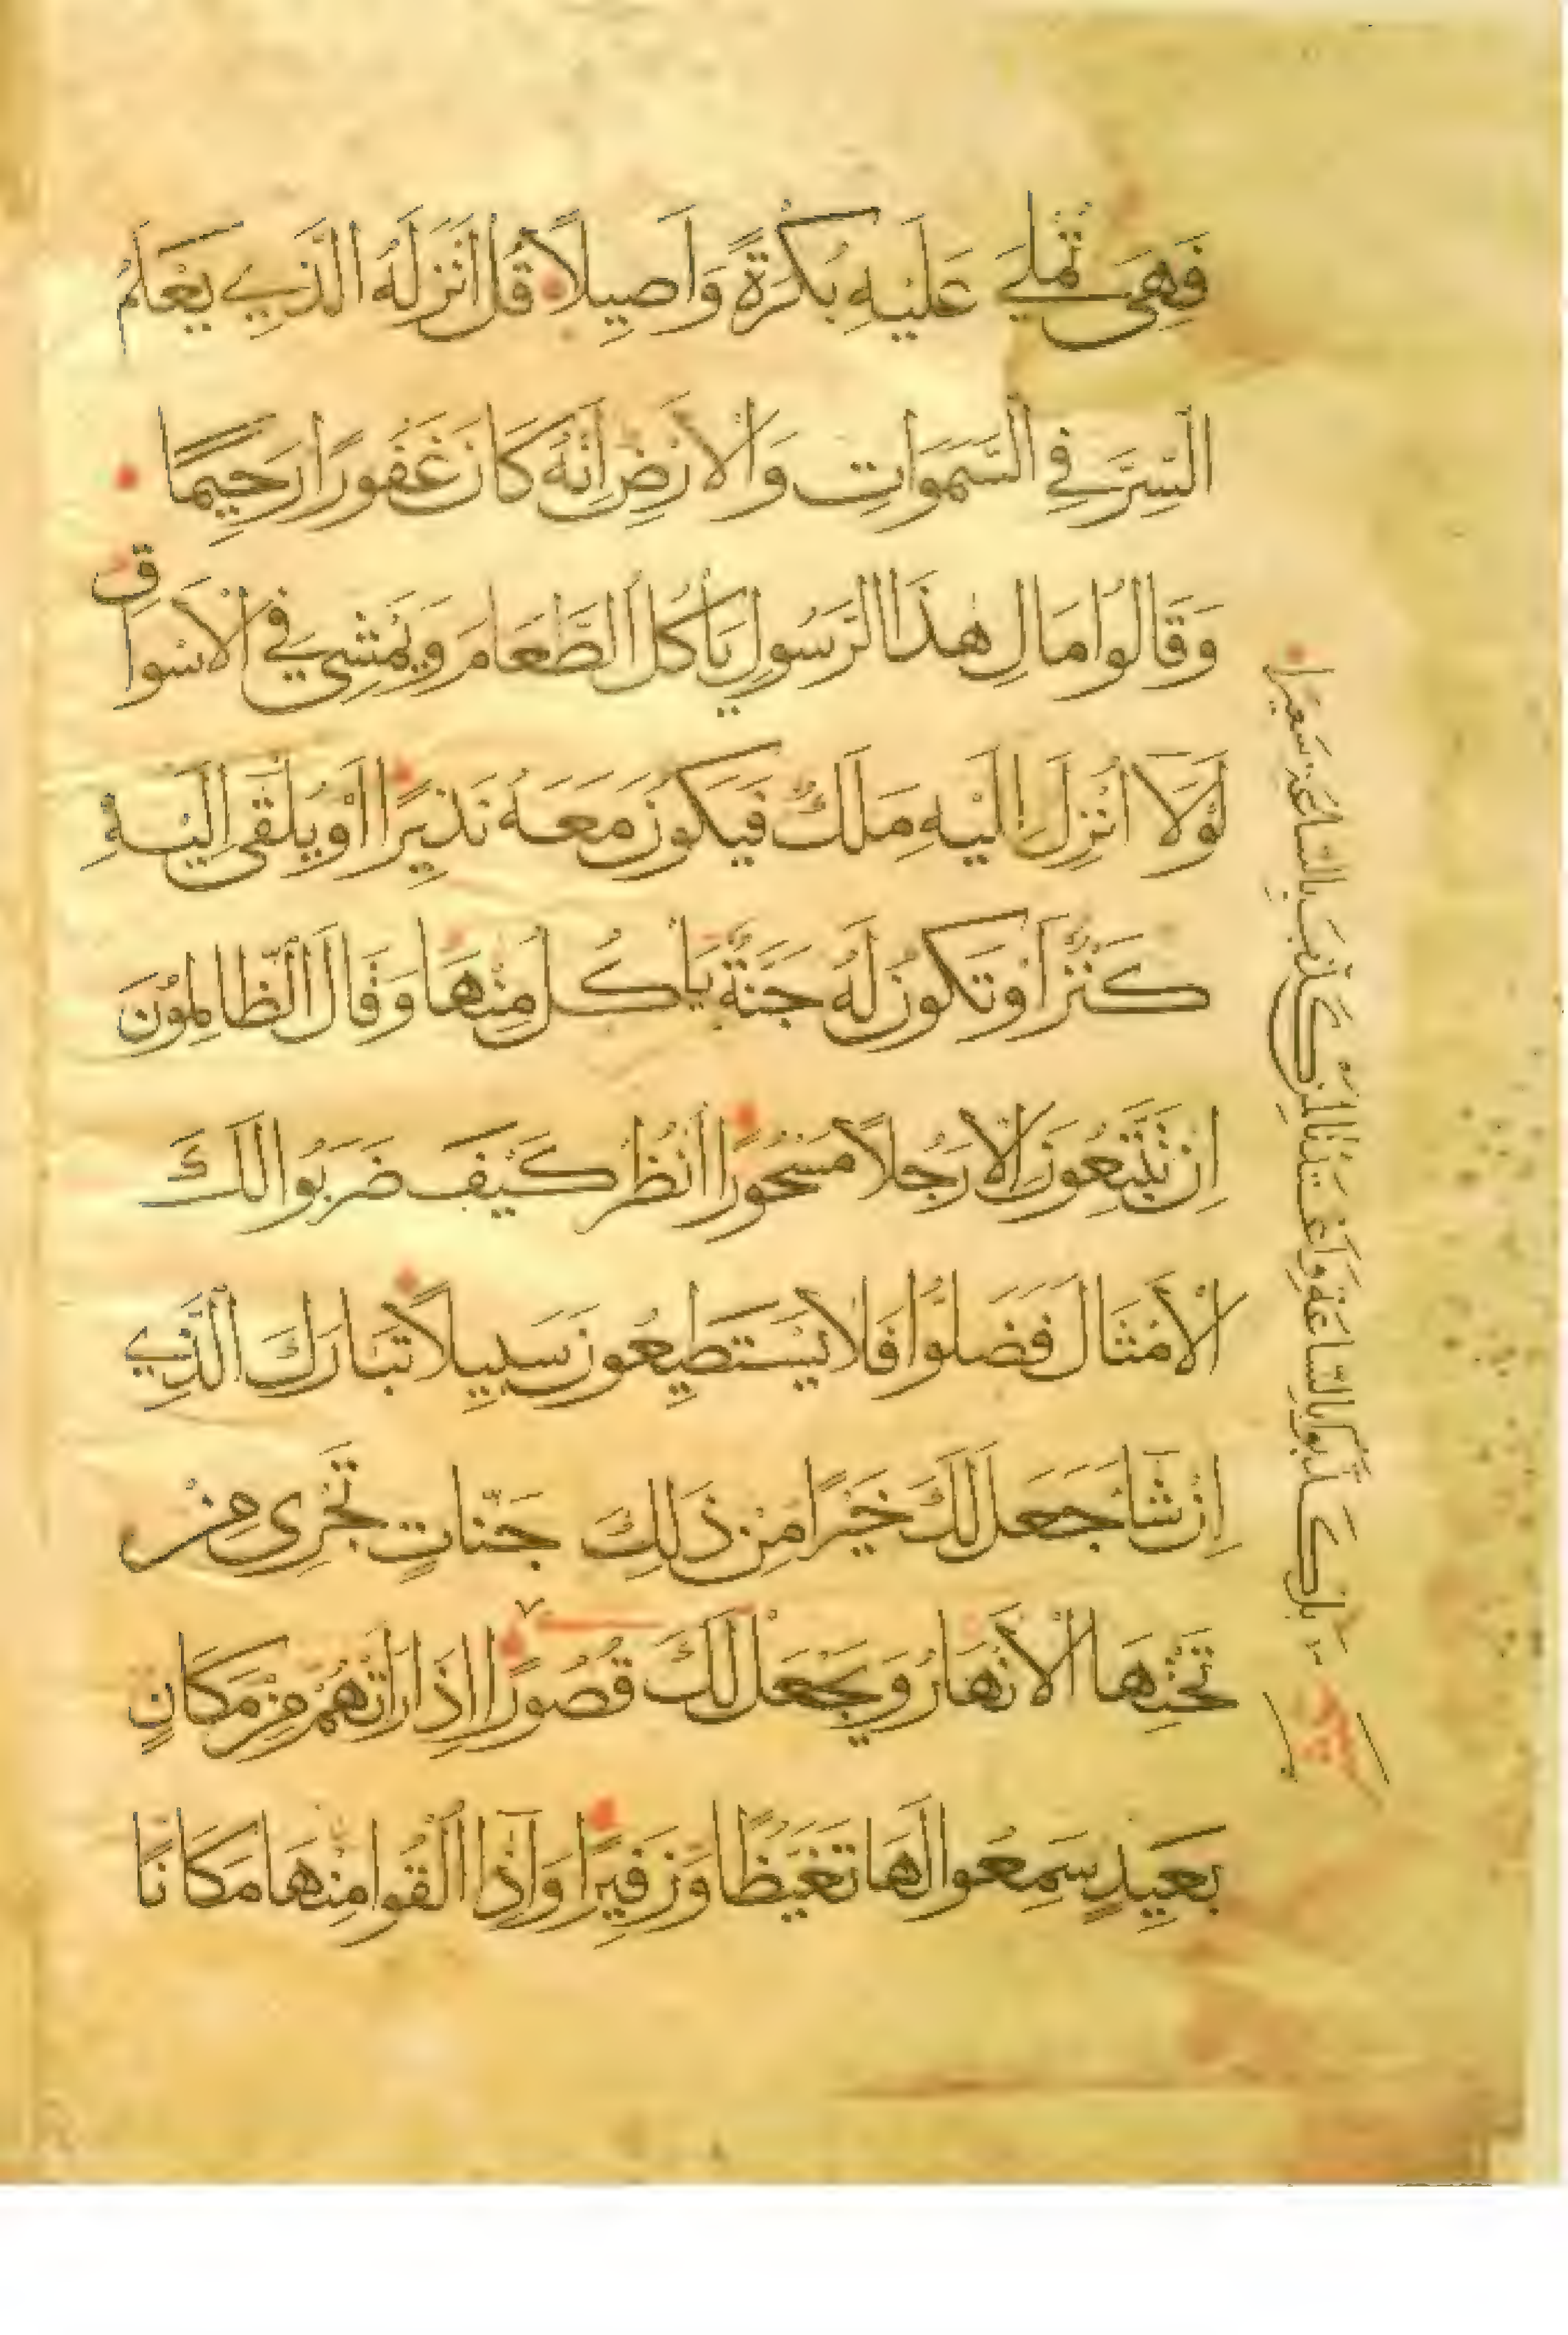 فَهِيَ تُمْلَي عَلَيْهِ بُكْرَةً وَاَصِيلًا قُلْ اَنْزَلَهُ الَّذِي يَعْلَمُ
السِّرَّ فِي السَّمَوَاتِ وَالْاَرْضِ اِنَّهُ كَانَ غَفُورًا رَحِيمًا
وَقَالُوا مَالِ هٰذَا الرَّسُولِ يَاْكُلُ الطَّعَامَ وَيَمْشِي فِي الْاَسْوَاقِ
لَوْلَا اُنْزِلَ اِلَيْهِ مَلَكٌ فَيَكُونَ مَعَهُ نَذِيرًا اَوْ يُلْقَى اِلَيْهِ
كَنْزٌ اَوْ تَكُونُ لَهُ جَنَّةٌ يَاْكُلُ مِنْهَا وَقَالَ الظَّالِمُوْنَ
اِنْ تَتَّبِعُونَ اِلَّا رَجُلًا مَسْحُورًا اُنْظُرْ كَيْفَ ضَرَبُوا لَكَ
الْاَمْثَالَ فَضَلُّوا فَلَا يَسْتَطِيعُونَ سَبِيلًا تَبَارَكَ الَّذِي
اِنْ شَآءَ جَعَلَ لَكَ خَيْرًا مِنْ ذَلِكَ جَنَّاتٍ تَجْرِي مِنْ
تَحْتِهَا الْاَنْهَارُ وَيَجْعَلْ لَكَ قُصُورًا اِذَا رَاَتْهُمْ مِنْ مَكَانٍ
بَعِيدٍ سَمِعُوا لَهَا تَغَيُّظًا وَزَفِيرًا وَاِذَآ اُلْقُوا مِنْهَا مَكَانًا
بَلْ كَذَّبُوا بِالسَّاعَةِ وَاَعْتَدْنَا لِمَنْ كَذَّبَ بِالسَّاعَةِ سَعِيرًا